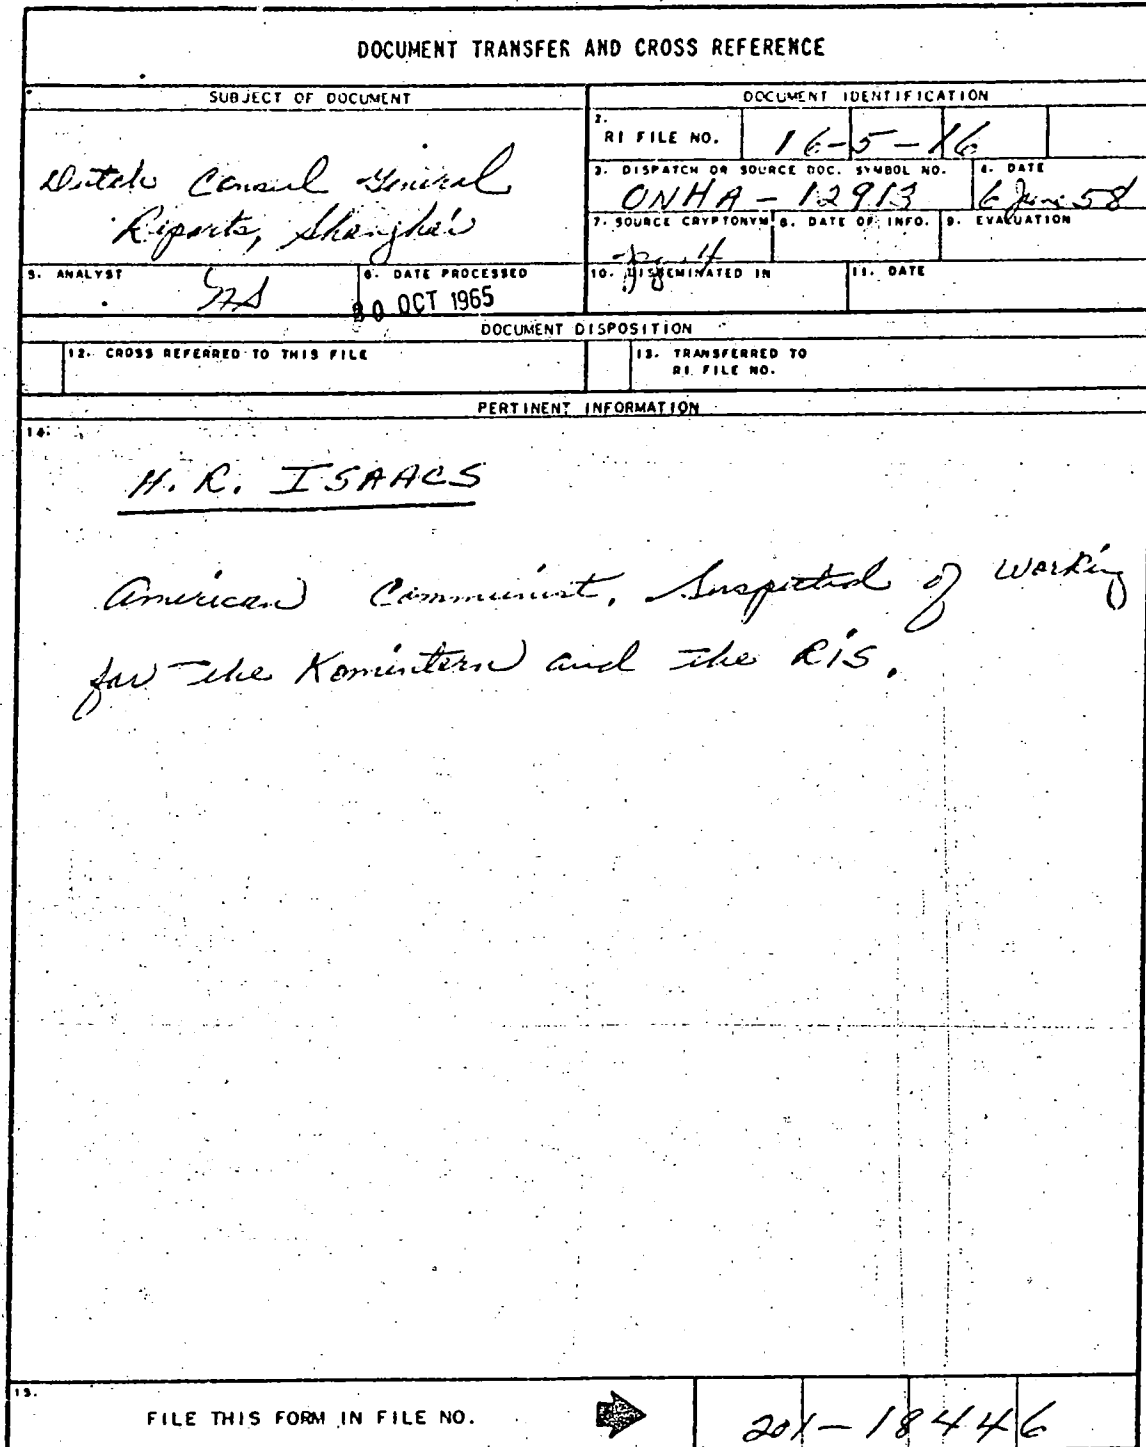 DOCUMENT TRANSFER AND CROSS REFERENCE
SUBJECT OF DOCUMENT
DOCUMENT IDENTIFICATION
Dutch Consul General
Reports, Shanghai
2.
RI FILE NO.
16-5-16
3. DISPATCH OR SOURCE DOC. SYMBOL NO.
4. DATE
ONHA-12913
6 June 58
7. SOURCE CRYPTONYM
8. DATE OF INFO.
9. EVALUATION
pg. 4
5. ANALYST
6. DATE PROCESSED
20 OCT 1965
10. DISSEMINATED IN
11. DATE
DOCUMENT DISPOSITION
12. CROSS REFERRED TO THIS FILE
13. TRANSFERRED TO
RI FILE NO.
PERTINENT INFORMATION
14.
H. R. ISAACS
American Communist. Suspected of working
for the Komintern and the RIS.
15.
FILE THIS FORM IN FILE NO.
201-18446